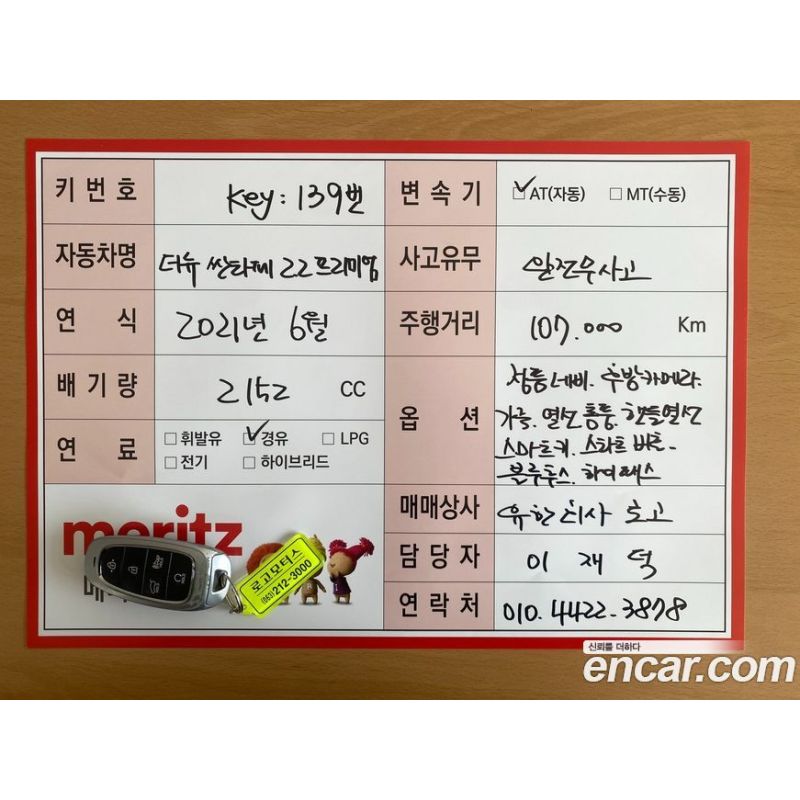 키 번 호 Key: 139번
변 속 기 ☑ AT(자동) ☐ MT(수동)
자동차명 더뉴 싼타페 2.2 프리미엄
사고유무 완전무사고
연 식 2021년 6월
주행거리 107.000 Km
배 기 량 2152 CC
옵 션 정품네비. 후방카메라.
가죽. 열선통풍. 핸들열선
스마트키. 스타트 버튼.
블루투스. 하이패스
연 료 ☐ 휘발유 ☑ 경유 ☐ LPG
☐ 전기 ☐ 하이브리드
매매상사 유한회사 로고
담 당 자 이 재 덕
연 락 처 010.4422.3878
moritz
로고모터스
(063)212-3000
신뢰를 더하다
encar.com